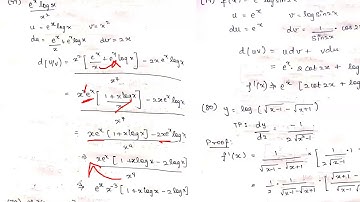 e^x log x / x²
u = e^x log x v = x²
du = e^x/x + e^x log x dv = 2x
d(u/v) = x² [e^x/x + e^x log x] - 2x e^x log x / x⁴
= x² e^x [1 + x log x] - 2x e^x log x / x⁴
= x e^x [1 + x log x] - 2x e^x log x / x⁴
⇒ x e^x [1 + x log x - 2 log x] / x⁴
⇒ e^x x⁻³ [1 + x log x - 2 log x]
u = e^x v = log sin 2x
du = e^x dv = 1/sin 2x
d(uv) = u dv + v du
= e^x · 2 cot 2x + log
f'(x) ⇒ e^x [2 cot 2x + log
(80) y = log (√x-1 - √x+1)
TP: dy/dx = -1 / 2√x²-1
Proof:
f'(x) = 1 / √x-1 - √x+1 · [1 / 2√x-1 -
= 1/2 · 1 / √x-1 - √x+1 · [√x+1 -